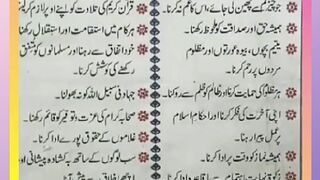 قرآن کریم کی تلاوت کو اپنے اوپر لازم کرلینا۔
ہر کام میں استقامت اور استقلال رکھنا۔
خود اتفاق سے رہنا اور مسلمانوں کو متفق
رکھنے کی کوشش کرنا۔
ہر مظلوم کی حمایت کرنا، ظالم کو ظلم سے روکنا۔
جہاد فی سبیل اللہ کو نہ بھولنا۔
صحابہ کرام کی عزت و توقیر کو قائم رکھنا۔
غلاموں کے حقوق پورے ادا کرنا۔
سب لوگوں کے ساتھ کشادہ پیشانی او
اچھا اخلاق سے پیش آنا
جو چیز کے چھین لی جائے، اس کا غم نہ کرنا۔
ہمیشہ حق اور صداقت کو ملحوظ رکھنا۔
یتیم بچوں، بیوہ عورتوں اور مظلوم
مردوں پر رحم کرنا۔
اپنی آخرت کی فکر کرنا اور احکام اسلام
پر عمل پیرا رہنا۔
ہمیشہ نماز کو وقت پر ادا کرنا۔
زکوٰۃ نہایت اہتمام سے ادا کرنا۔